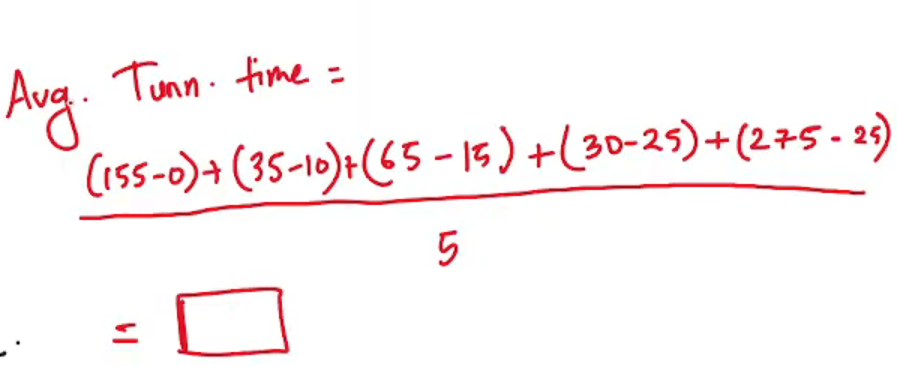 Avg. Turn. time =
(155-0)+(35-10)+(65-15)+(30-25)+(275-25)
5
=